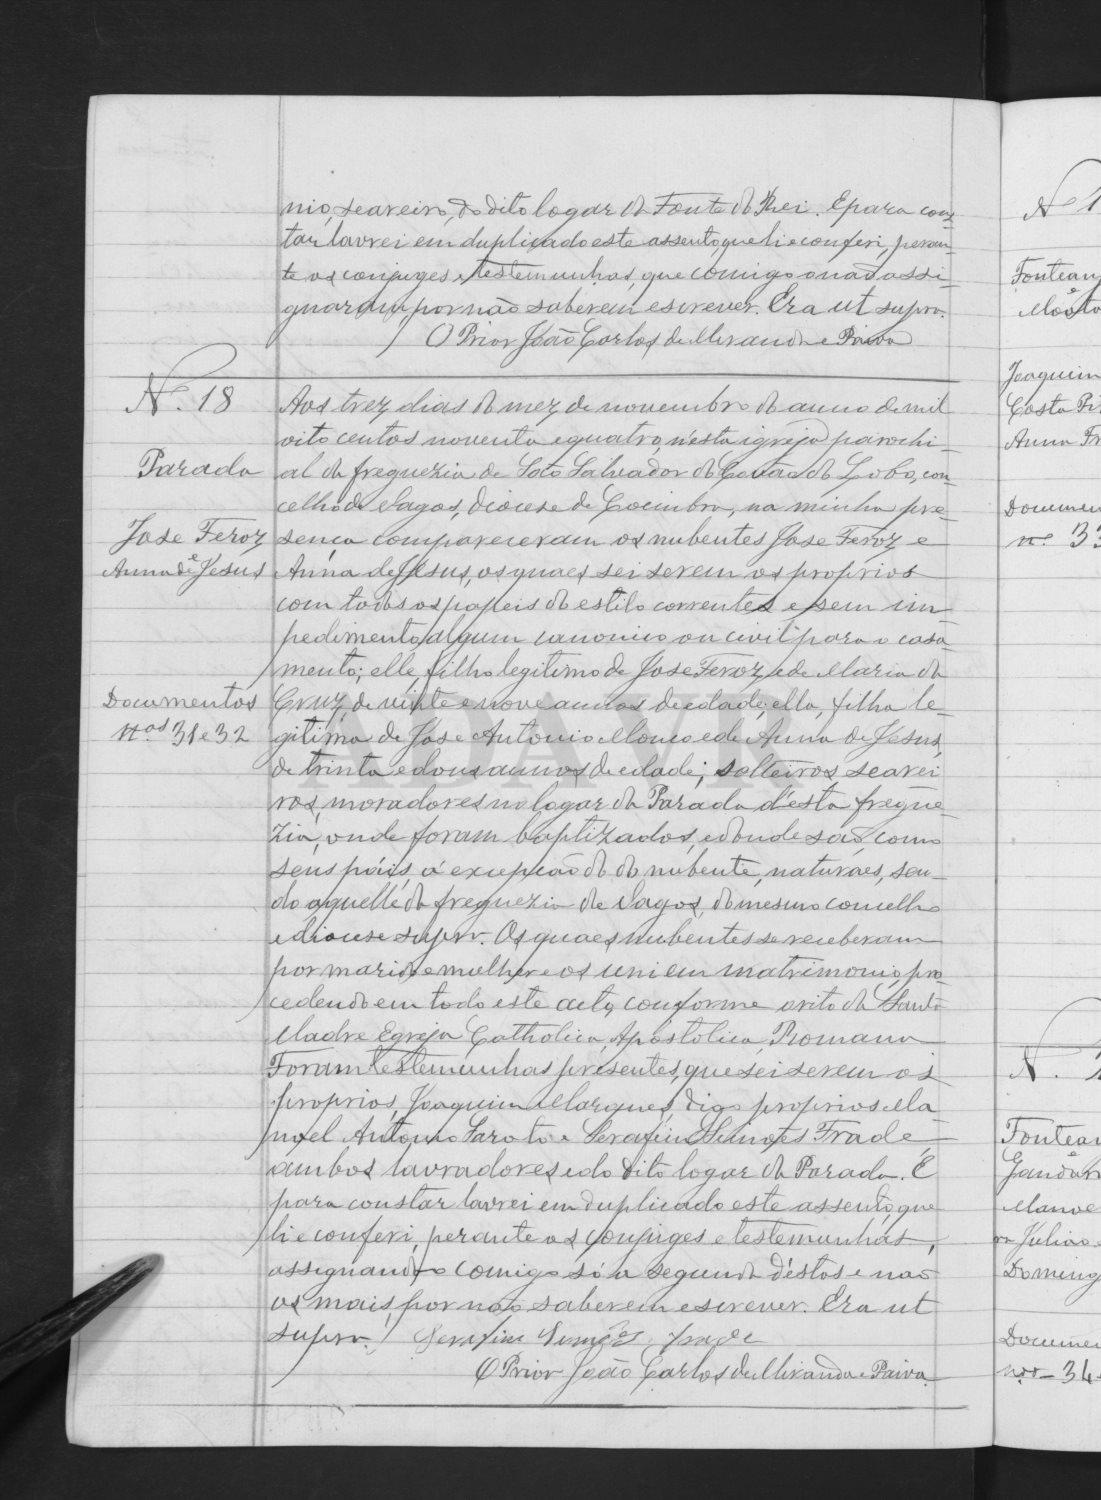 nio, seareiro, do dito logar da Fonte do Rei. E para cons-
tar lavrei em duplicado este assento, que li e conferi, peran-
te os conjuges e testemunhas, que comigo o não assi-
gnaram, por não saberem escrever. Era ut supra.
O Prior João Carlos de Miranda e Paiva
Nº 18
Parada
Jose Feroz
e
Anna de Jesus
Documentos
nos 31 e 32
Aos trez dias do mez de novembro do anno de mil
oito centos noventa e quatro, n'esta igreja parochi-
al da freguezia de São Salvador do Covão do Lobo, con-
celho de Vagos, diocese de Coimbra, na minha pre-
sença compareceram os nubentes Jose Feroz e
Anna de Jesus, os quaes sei serem os proprios
com todos os papeis do estilo correntes e sem im-
pedimento algum canonico ou civil para o casa-
mento; elle, filho legitimo de Jose Feroz e de Maria da
Cruz, de vinte e nove annos de edade; ella, filha le-
gitima de Jose Antonio Mouco e de Anna de Jesus,
de trinta e dous annos de edade; solteiros, searei-
ros, moradores no logar da Parada d'esta fregue-
zia, onde foram baptizados, e donde são, como
seus páis, á excepção do do nubente, naturaes, sen-
do aquelle da freguezia de Vagos, do mesmo concelho
e diocese supra. Os quaes nubentes se receberam
por marido e mulher e os uni em matrimonio, pro-
cedendo em todo este acto conforme o rito da Santa
Madre Egreja Catholica, Apostolica, Romana
Foram testemunhas presentes, que sei serem os
proprios, Joaquim Marques, digo proprios Ma-
noel Antonio Saroto e Serafim Simões Frade
ambos lavradores e do dito logar da Parada. E
para constar lavrei em duplicado este assento, que
li e conferi, perante os conjuges e testemunhas,
assignando comigo só a segunda d'estas e não
os mais, por não saberem escrever. Era ut
supra. Serafim Simões Frade
O Prior João Carlos de Miranda e Paiva.
AADAVR
Nº 1
Fontean
e
Mouta
Joaquim
Costa Pi
Anna Fr
Documen
nº 33
N.
Fontean
e
Gandar
Manoe
Julião
Doming
Documen
nos 34